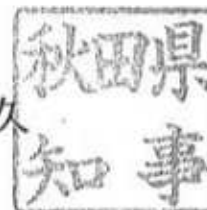 秋田県
久
知事